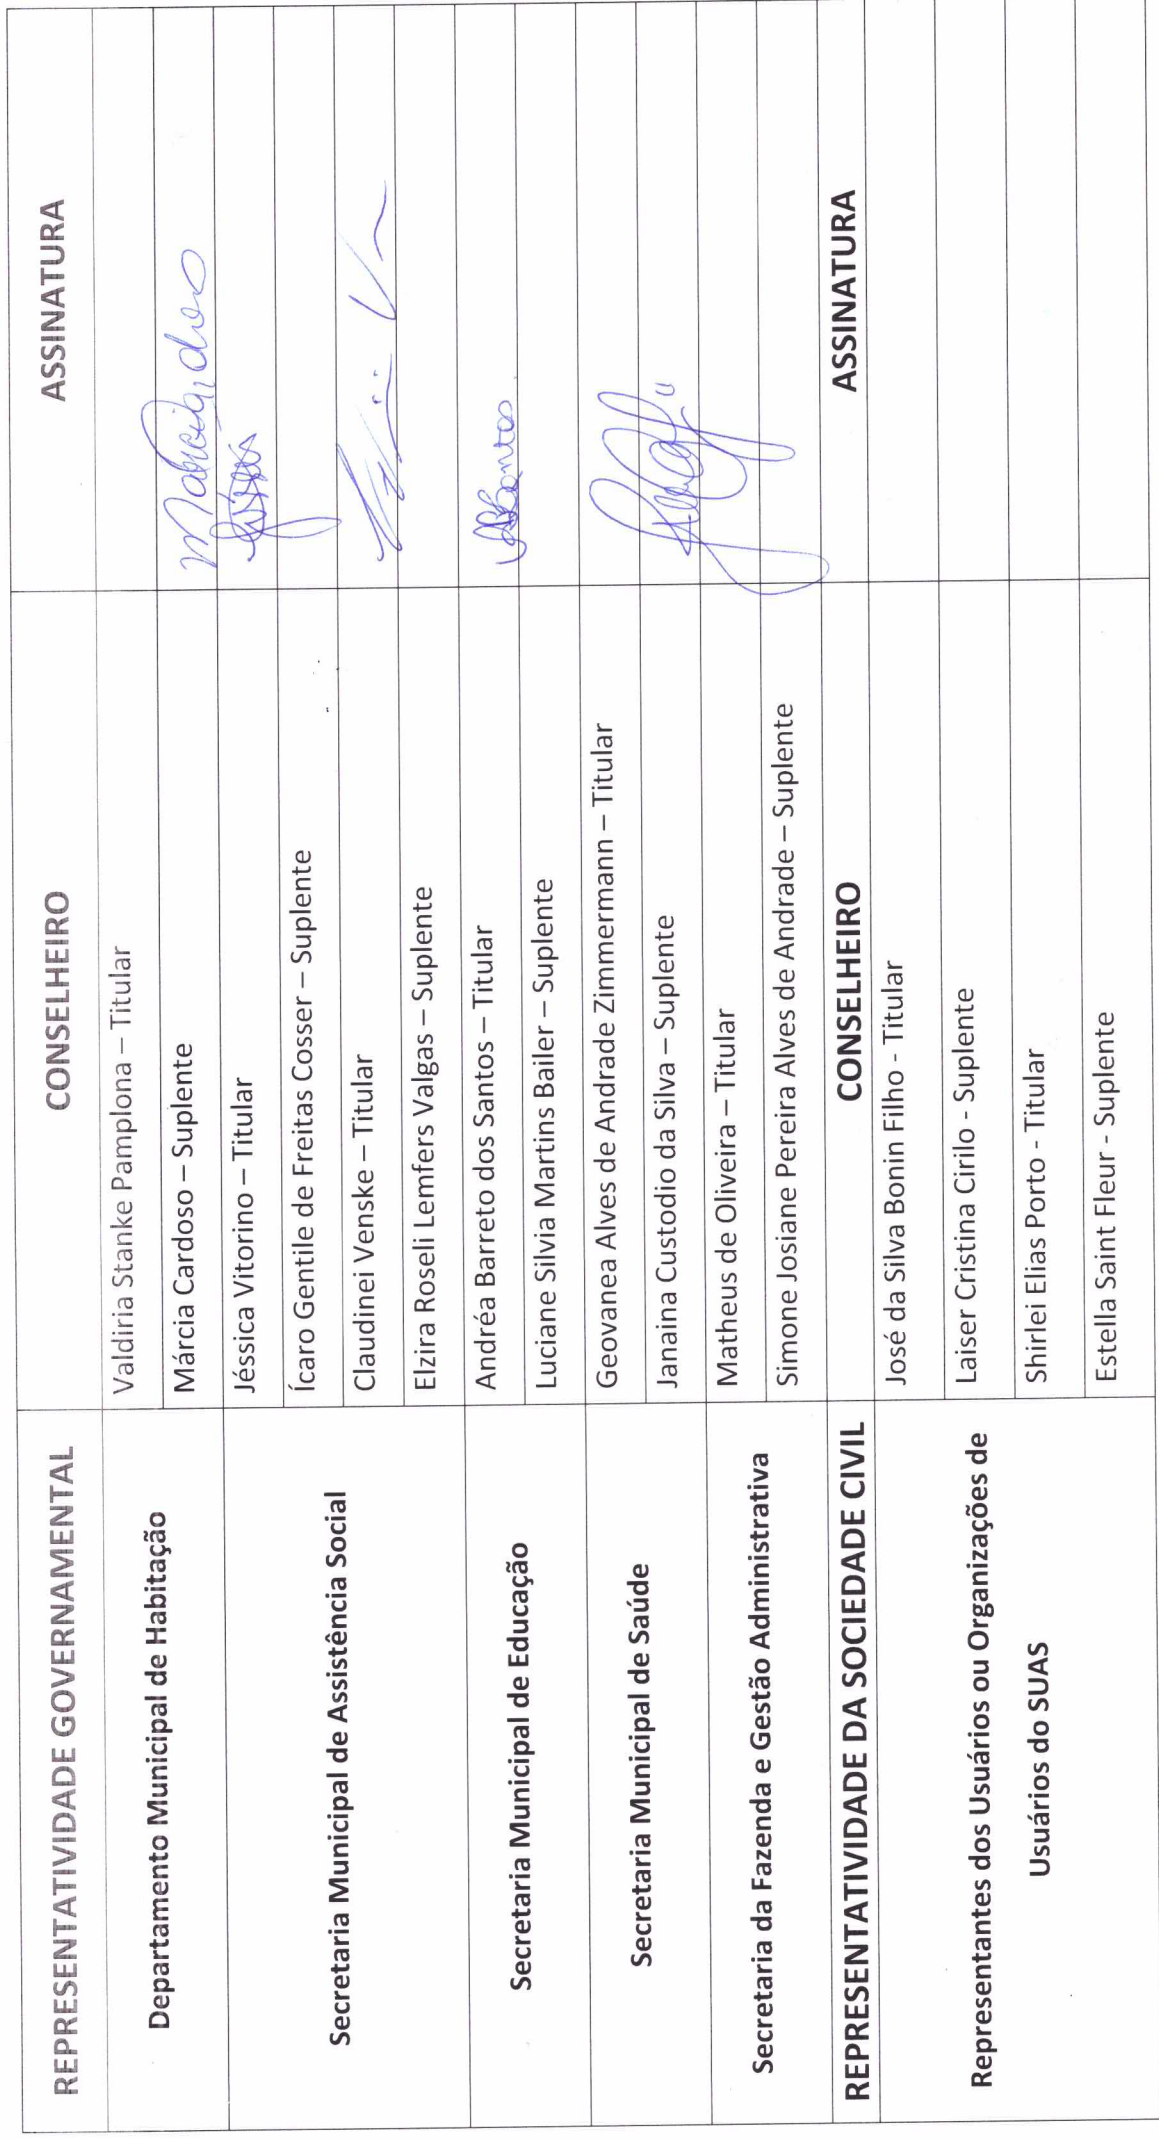 REPRESENTATIVIDADE GOVERNAMENTAL
CONSELHEIRO
ASSINATURA
Departamento Municipal de Habitação
Valdiria Stanke Pamplona – Titular
Márcia Cardoso – Suplente
Secretaria Municipal de Assistência Social
Jéssica Vitorino – Titular
Ícaro Gentile de Freitas Cosser – Suplente
Claudinei Venske – Titular
Elzira Roseli Lemfers Valgas – Suplente
Secretaria Municipal de Educação
Andréa Barreto dos Santos – Titular
Luciane Silvia Martins Bailer – Suplente
Secretaria Municipal de Saúde
Geovanea Alves de Andrade Zimmermann – Titular
Janaina Custodio da Silva – Suplente
Secretaria da Fazenda e Gestão Administrativa
Matheus de Oliveira – Titular
Simone Josiane Pereira Alves de Andrade – Suplente
REPRESENTATIVIDADE DA SOCIEDADE CIVIL
CONSELHEIRO
ASSINATURA
Representantes dos Usuários ou Organizações de
Usuários do SUAS
José da Silva Bonin Filho - Titular
Laiser Cristina Cirilo - Suplente
Shirlei Elias Porto - Titular
Estella Saint Fleur - Suplente